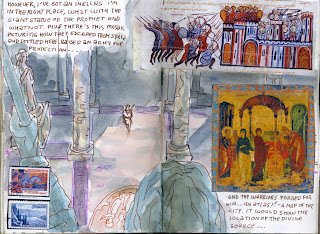 HOWEVER, I'VE GOT AN INKLING I'M
IN THE RIGHT PLACE, WHAT WITH THE
GIANT STATUE OF THE PROPHET AND
WHATNOT. PLUS THERE'S THIS MOSAIC
PICTURING HOW THEY ESCAPED FROM SYRIA
AND SETTLED HERE, RAISED AN ARMY FOR
PROTECTION...
AND THE WARRIORS FORGED FOR
HIM... AN ATLAS! - A MAP OF THE
CITY. IT WOULD SHOW THE
LOCATION OF THE DIVINE
SOURCE...